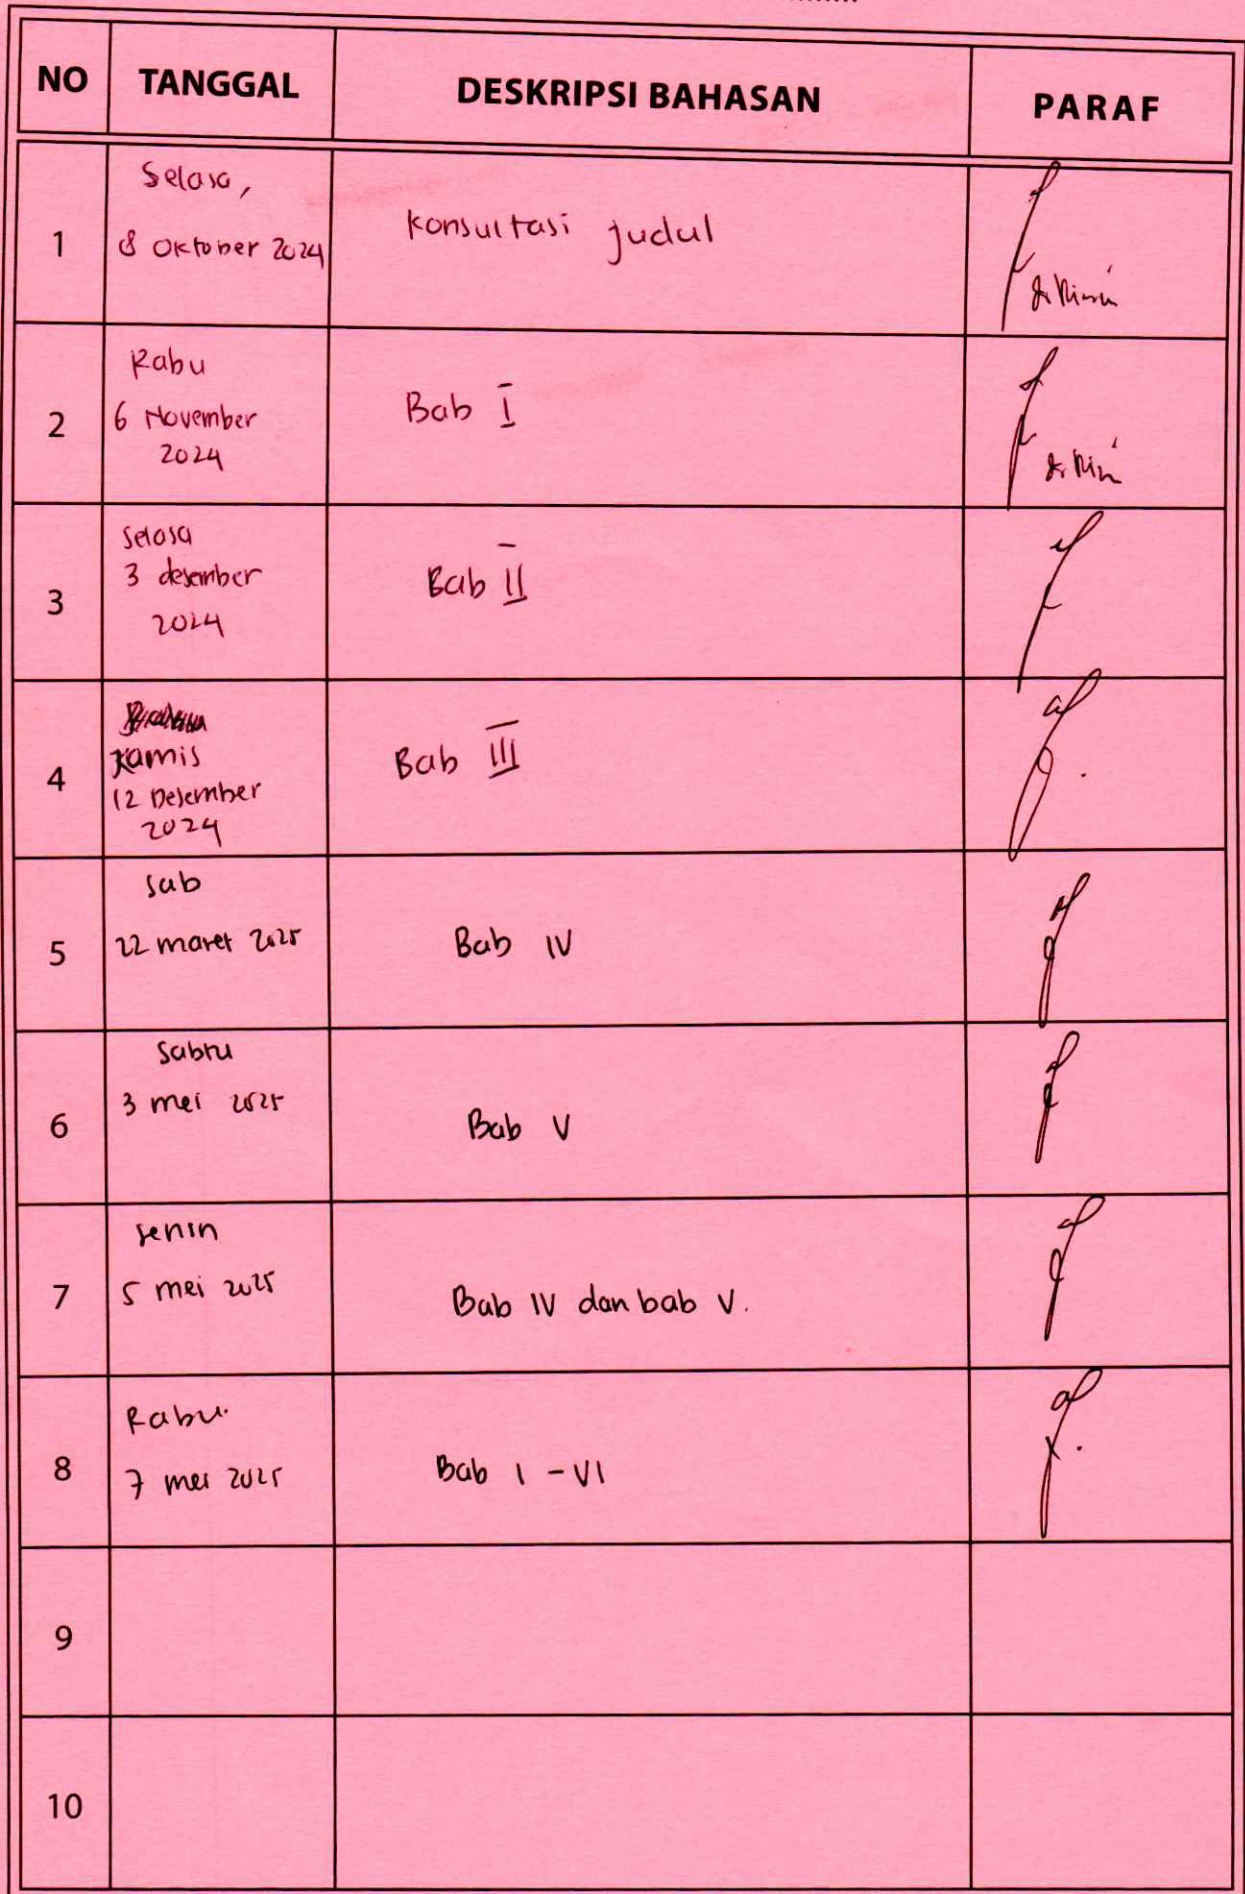 NO TANGGAL DESKRIPSI BAHASAN PARAF
Selasa,
1 8 Oktober 2024 Konsultasi judul
Rabu
2 6 November Bab I
2024
Selasa
3 3 desember Bab II
2024
Kamis
4 12 Desember Bab III
2024
sab
5 22 maret 2025 Bab IV
Sabtu
6 3 mei 2025 Bab V
senin
7 5 mei 2025 Bab IV dan bab V.
Rabu.
8 7 mei 2025 Bab I - VI
9
10